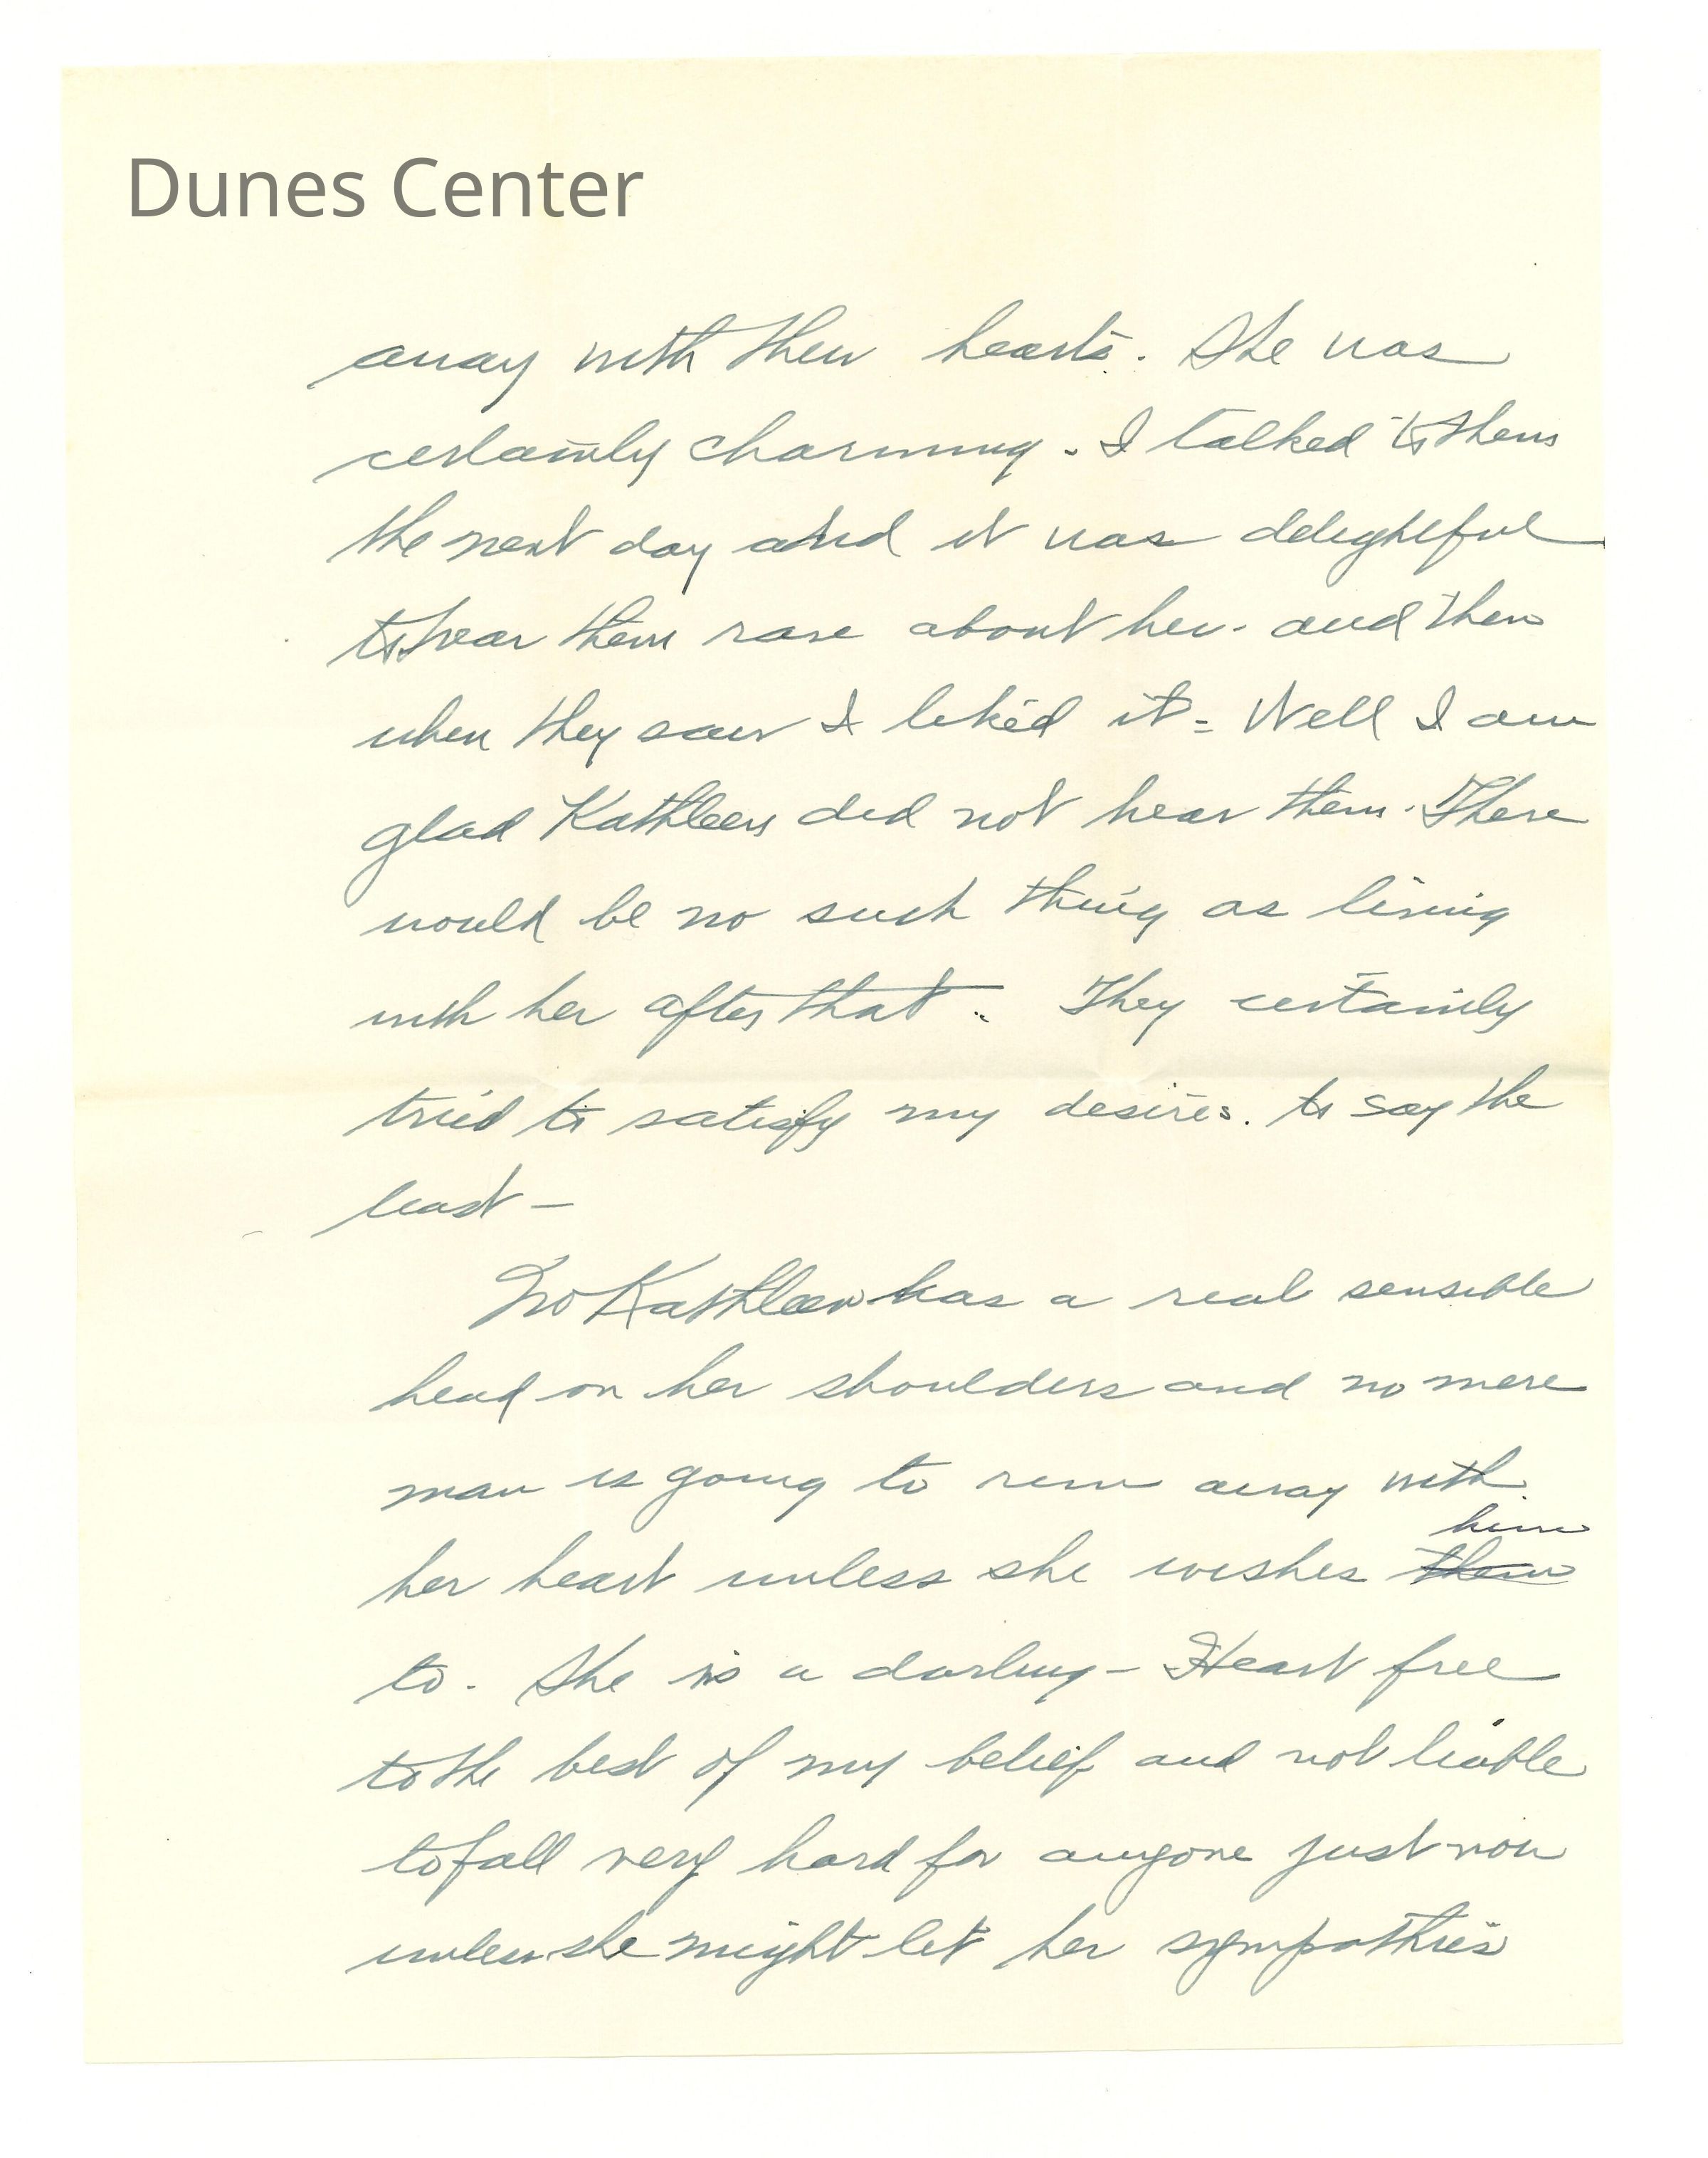 Dunes Center
away with their hearts. She was
certainly charming. I talked to them
the next day and it was delightful
to hear them rave about her. and then
when they saw I liked it = Well I am
glad Kathleen did not hear them. There
would be no such thing as living
with her after that. They certainly
tried to satisfy my desires. to say the
least -
No Kathleen has a real sensible
head on her shoulders and no mere
man is going to run away with
him
her heart unless she wishes them
to. She is a darling - Heart free
to the best of my belief and not liable
to fall very hard for anyone just now
unless she might let her sympathies